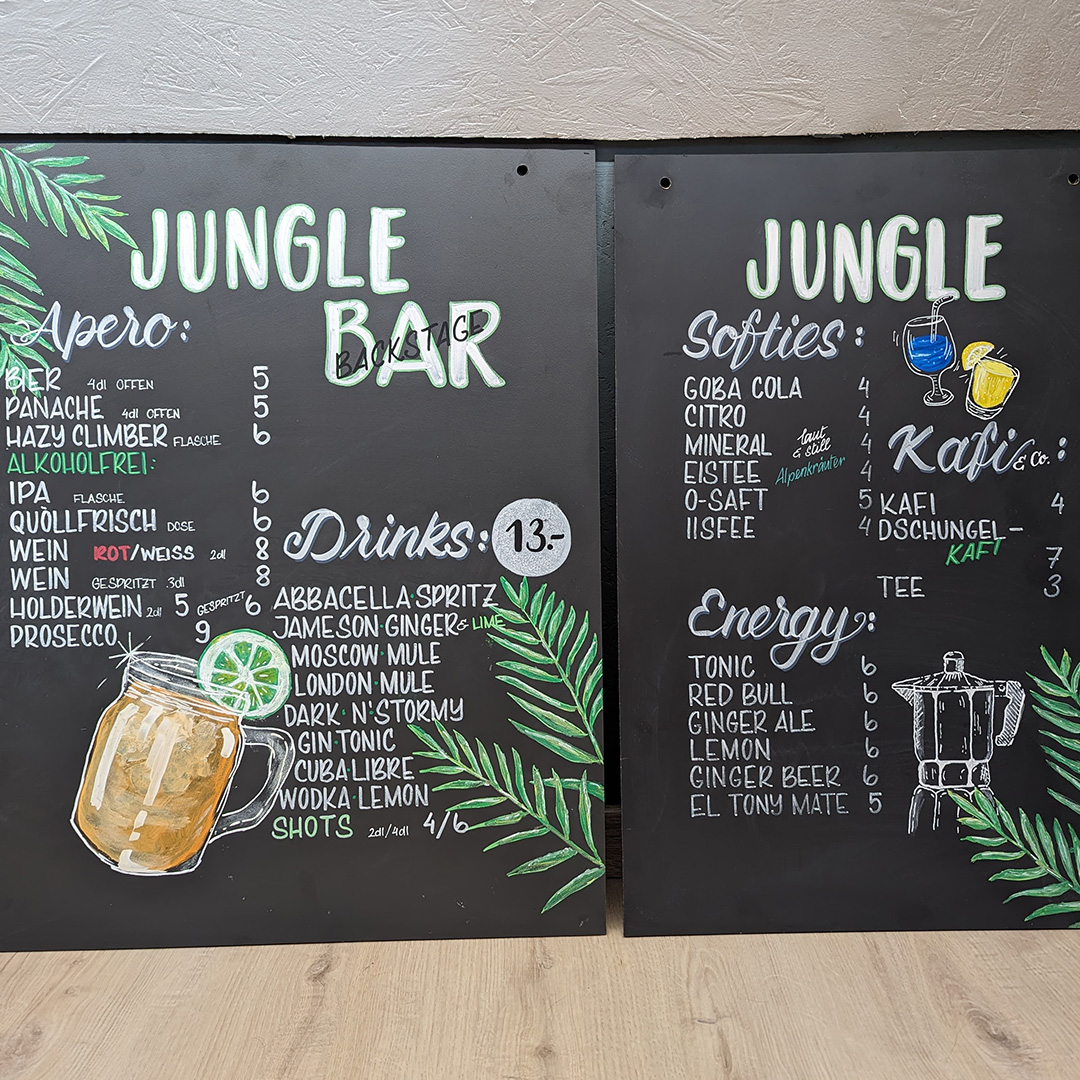 JUNGLE
BAR
BACKSTAGE
Apero:
BIER 4dl OFFEN 5
PANACHE 4dl OFFEN 5
HAZY CLIMBER FLASCHE 6
ALKOHOLFREI:
IPA FLASCHE 6
QUÖLLFRISCH DOSE 6
WEIN ROT/WEISS 2dl 8
WEIN GESPRITZT 3dl 8
HOLDERWEIN 2dl 5 GESPRITZT 6
PROSECCO 9
Drinks: 13.-
ABBACELLA·SPRITZ
JAMESON·GINGER & LIME
MOSCOW·MULE
LONDON·MULE
DARK·N'STORMY
GIN·TONIC
CUBA·LIBRE
WODKA·LEMON
SHOTS 2dl/4dl 4/6
JUNGLE
Softies:
GOBA COLA 4
CITRO 4
MINERAL laut & still 4
EISTEE Alpenkräuter 4
O-SAFT 5
IISFEE 4
Kafi & Co.:
KAFI 4
DSCHUNGEL-
KAFI 7
TEE 3
Energy:
TONIC 6
RED BULL 6
GINGER ALE 6
LEMON 6
GINGER BEER 6
EL TONY MATE 5